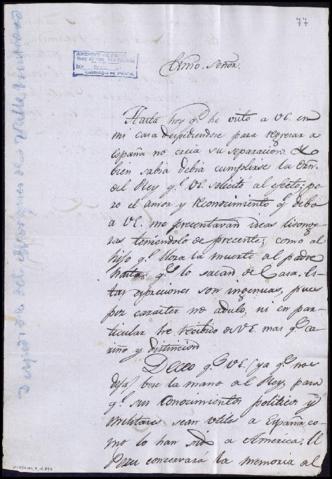 77
Exmo. Señor.
Hasta hoy q.e he visto a VE. en
mi casa despidiendose para regresar a
España no creia su separacion.
bien sabia debia cumplirse la Orn.
del Rey q.e VE. solicitó al efecto; pe-
ro el amor y reconocimiento q.e debo
a VE. me presentaban ideas lisonge-
ras teniendolo de presente; como al
hijo q.e llora la muerte al padre
hasta q.e lo sacan de Casa. Es-
tas expresiones son ingenuas, pues
por caracter no adulo, ni en par-
ticular he recibido de VE. mas q.e ca-
riño y distincion.
Deseo q.e VE. (ya q.e nos
deja) bese la mano al Rey, para
q.e sus conocimientos politicos y
militares sean utiles a España co-
mo lo han sido a America. El
Peru conservará la memoria al